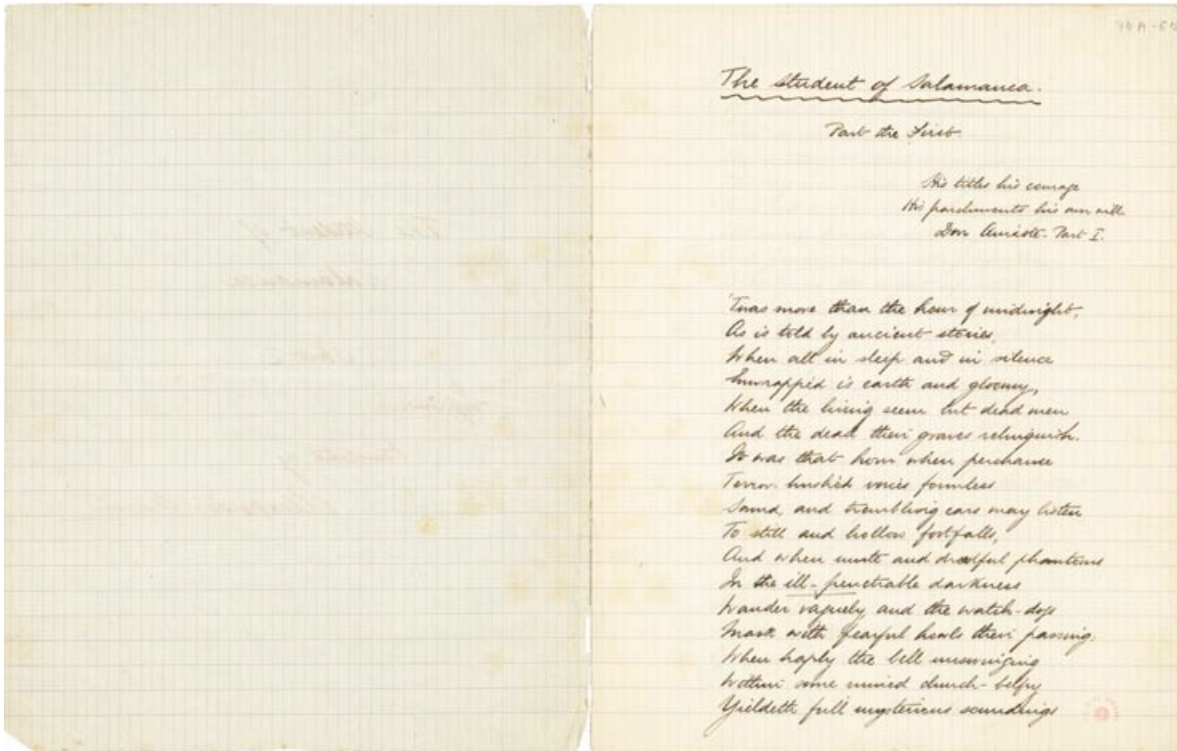 The Student of Salamanca.
Part the First.
His titles his courage
His parchments his own will.
Don Quixote. Part I.
'Twas more than the hour of midnight,
As is told by ancient stories,
When all in sleep and in silence
Enwrapped is earth and gloomy,
When the living seem but dead men
And the dead their graves relinquish.
It was that hour when perchance
Terror-hushèd voices formless
Sound, and trembling ears may listen
To still and hollow footfalls,
And when mute and dreadful phantoms
In the ill-penetrable darkness
Wander vaguely and the watch-dogs
Mark with fearful howls their passing;
When haply the bell unswinging
Within some ruined church-belfry
Yieldeth full mysterious soundings